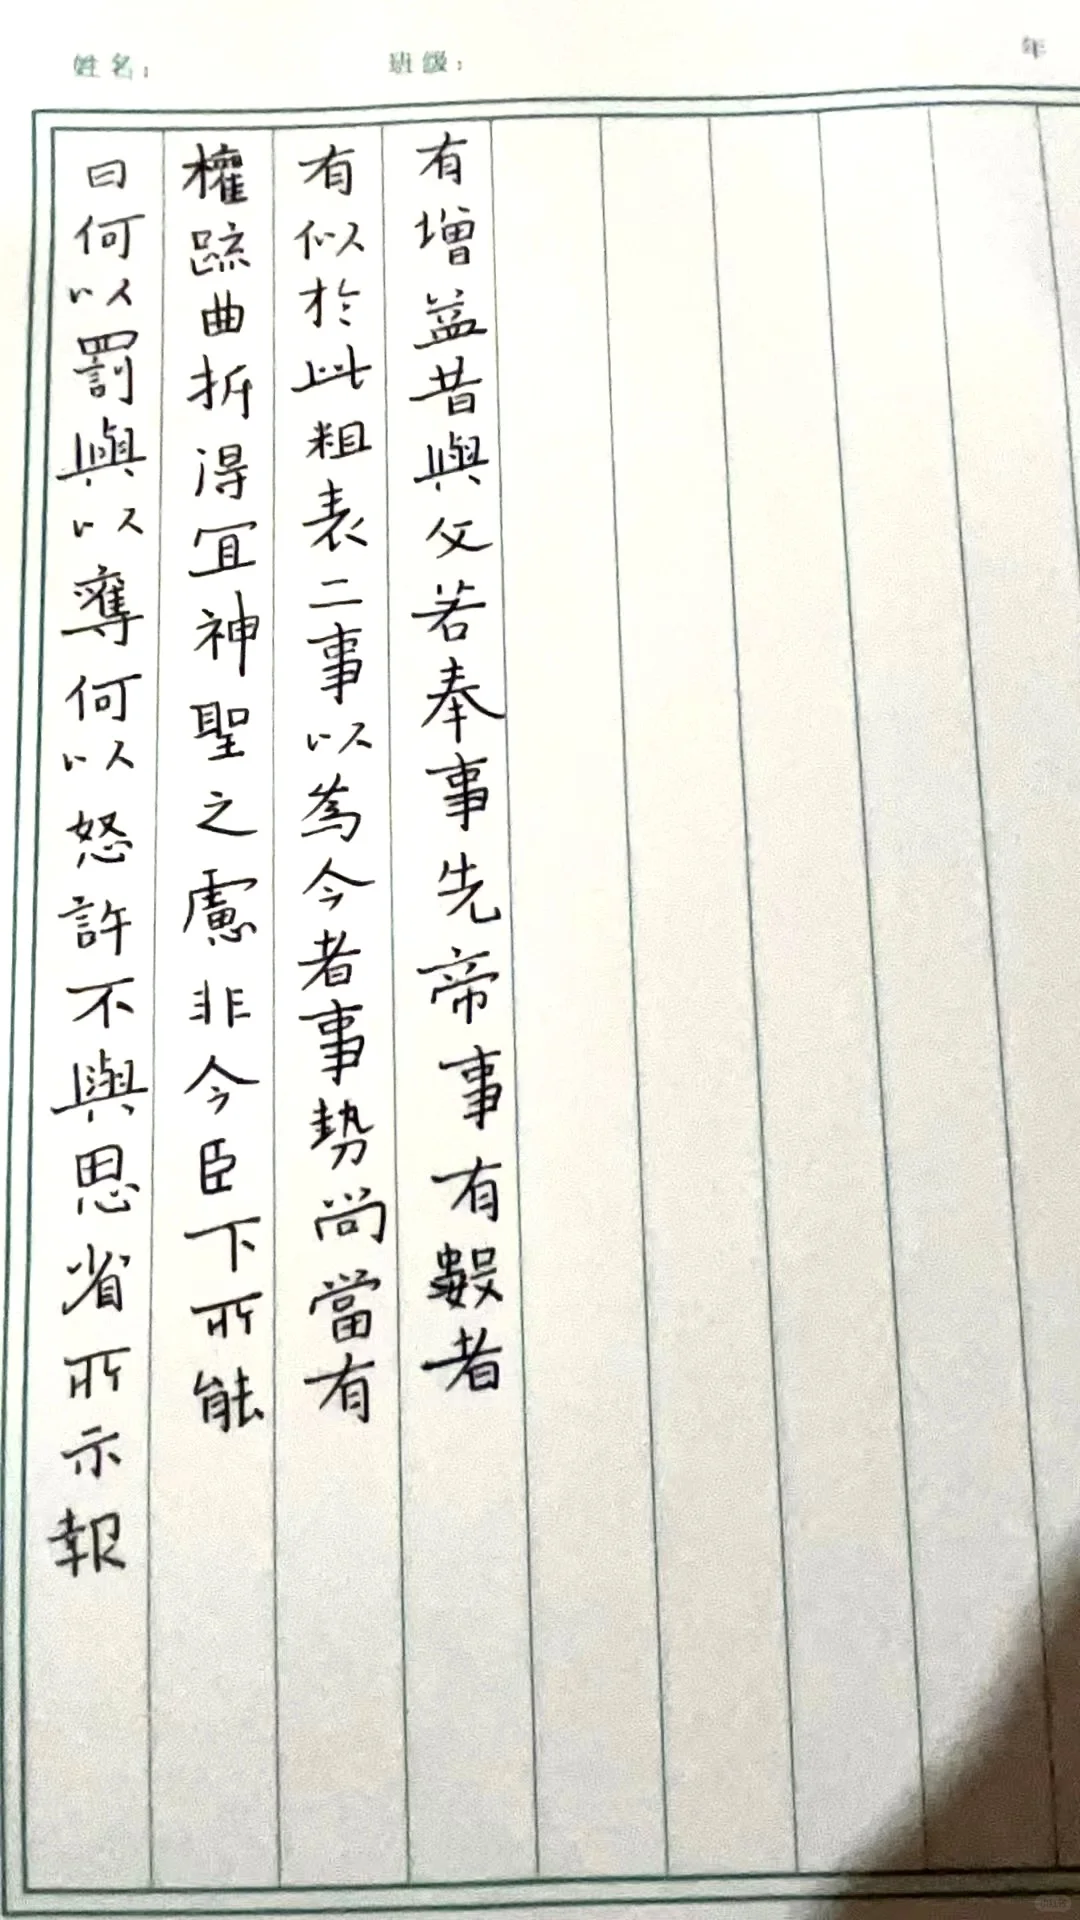 姓名： 班级： 年
曰何以罰與以奪何以怒許不與思省所示報
權疏曲折得宜神聖之慮非今臣下所能
有似於此粗表二事以為今者事勢尚當有
有增益昔與父若奉事先帝事有數者